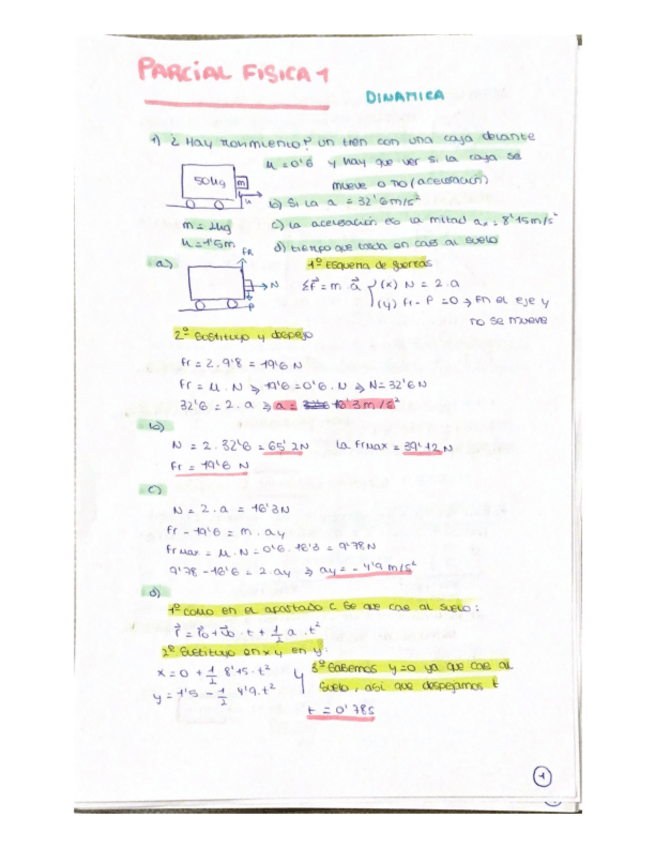 PARCIAL FISICA 1
DINAMICA
1) ¿Hay movimiento? un tren con una caja delante
μ = 0'6 y hay que ver si la caja se
mueve o no (aceleración)
50kg
m
h
b) Si la a = 32'6 m/s²
m = 2kg
c) La aceleración es la mitad ax = 8'15 m/s²
h = 1'5m
d) tiempo que tarda en caer al suelo
a)
FR
N
P
1º Esquema de fuerzas
ΣF = m · a (x) N = 2 · a
(y) Fr - P = 0 → En el eje y
no se mueve
2º Sustituyo y despejo
Fr = 2 · 9'8 = 19'6 N
Fr = μ · N → 19'6 = 0'6 · N → N = 32'6 N
32'6 = 2 · a → a = 16'3 m/s²
b)
N = 2 · 32'6 = 65'2N La FrMax = 39'12 N
Fr = 19'6 N
c)
N = 2 · a = 16'3N
Fr - 19'6 = m · ay
FrMax = μ · N = 0'6 · 16'3 = 9'78N
9'78 - 19'6 = 2 · ay → ay = - 4'9 m/s²
d)
1º como en el apartado C se que cae al suelo:
r = r0 + v0 · t + 1/2 a · t²
2º Sustituyo en x y en y:
x = 0 + 1/2 8'15 · t²
y = 1'5 - 1/2 4'9 · t²
3º Sabemos y=0 ya que cae al
suelo, asi que despejamos t
t = 0'78s
1